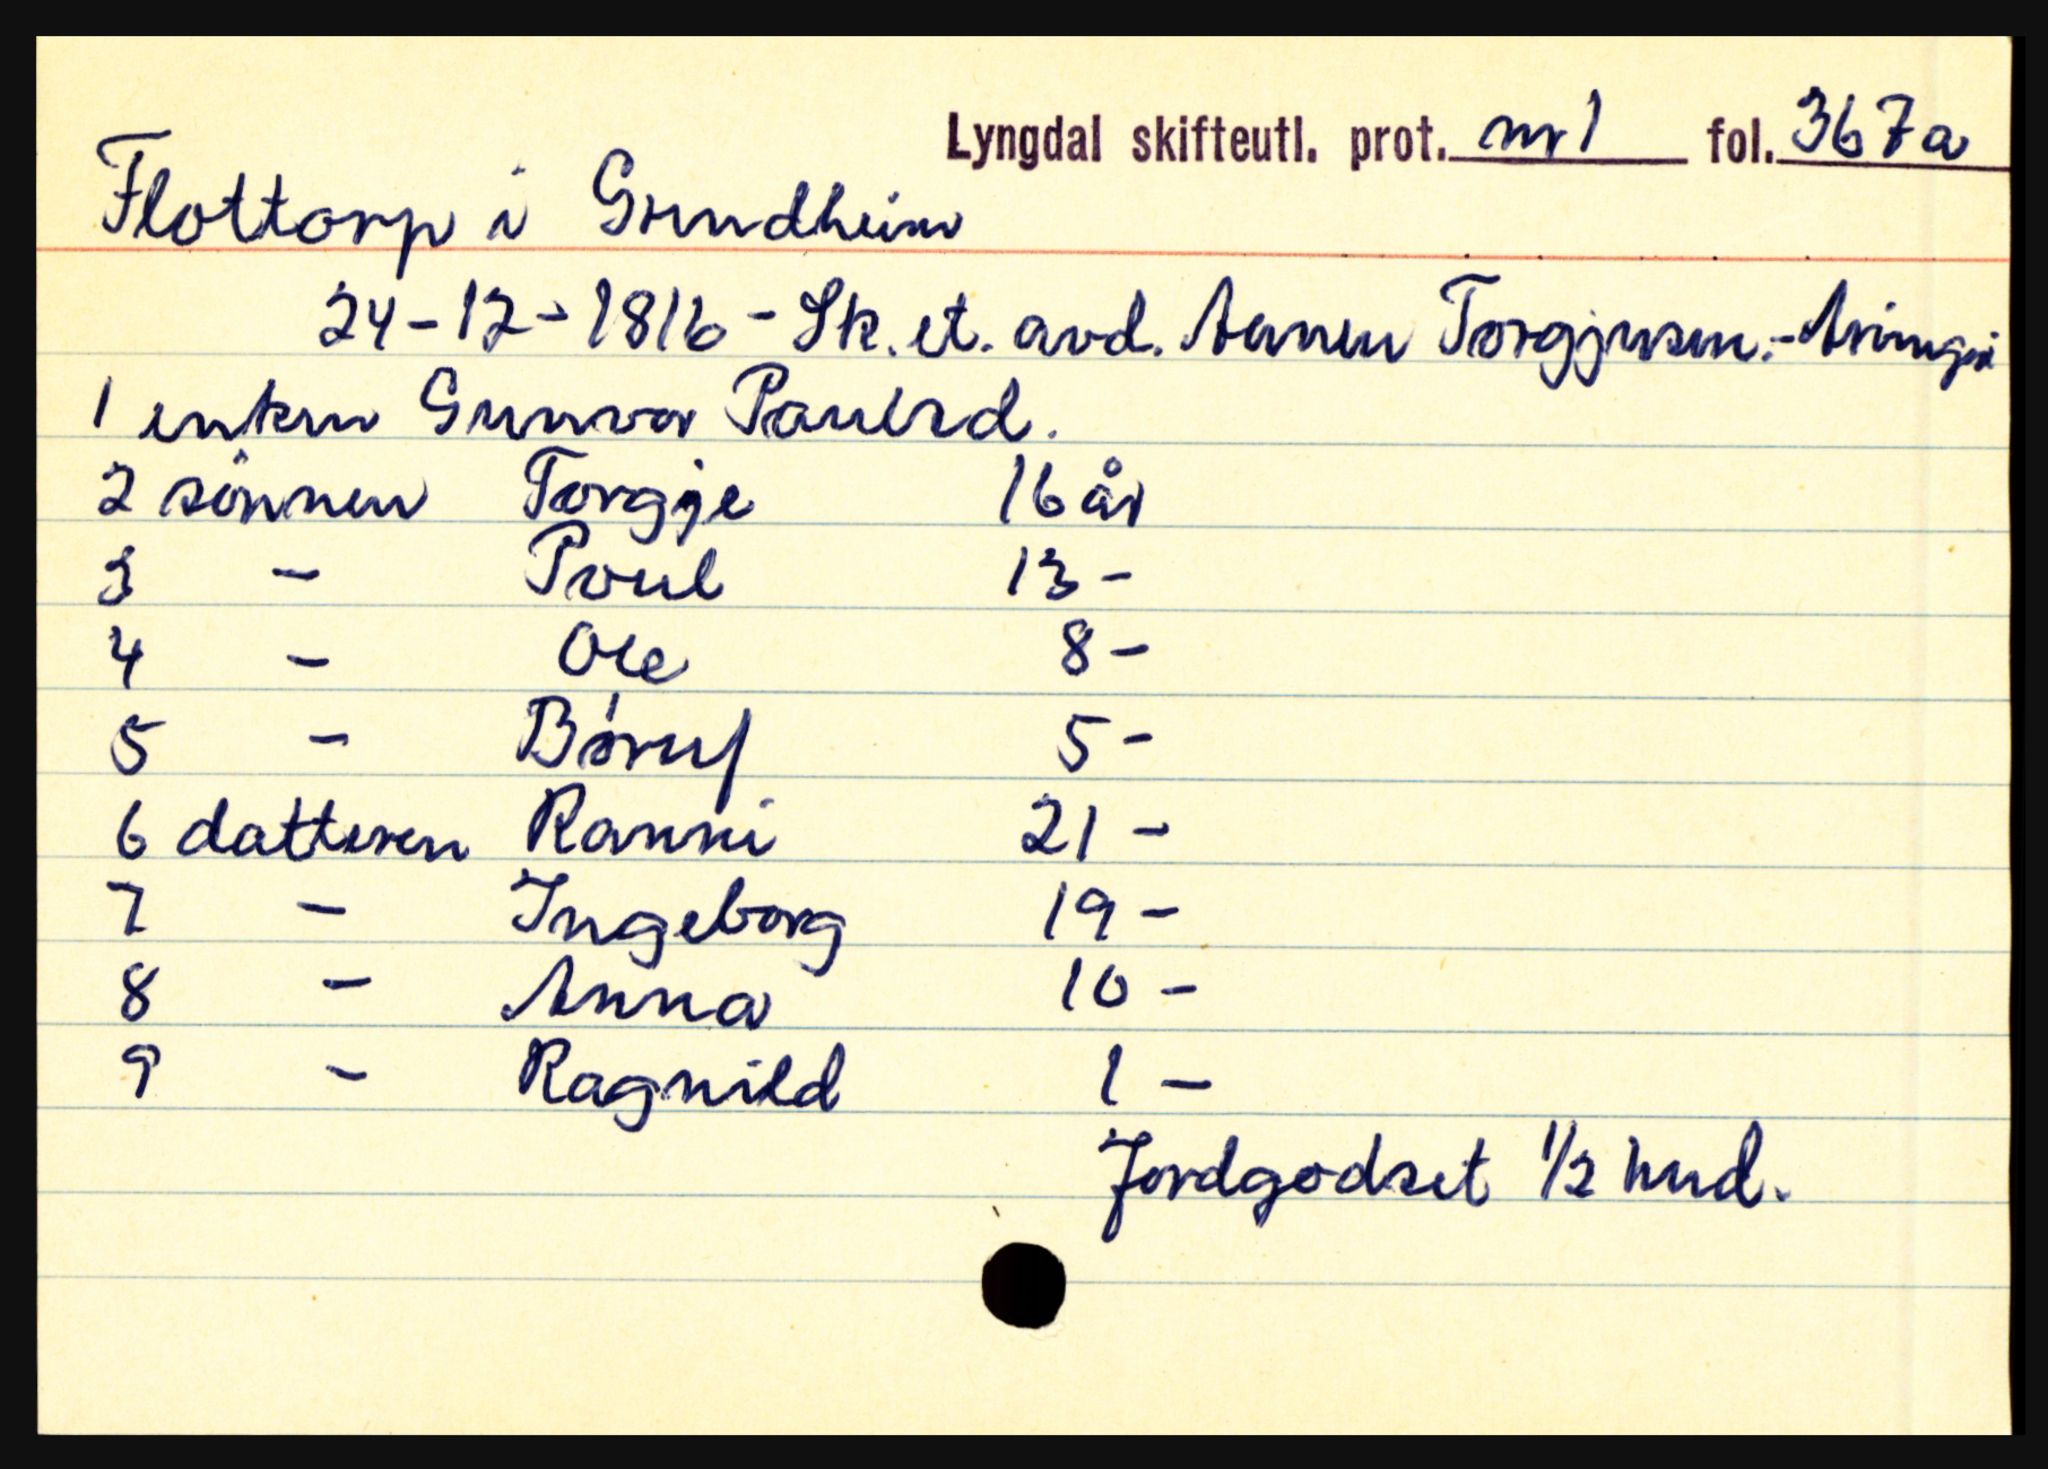 Lyngdal skifteutl. prot. nr 1 fol. 367a
Flottorp i Grindheim
24-12-1816 - Sk. et. avd. Aanen Torgjusen. - Arvinger
1 enken Gunvor Paulsd.
2 sönnen Torgje 16 år
3 - Poul 13 -
4 - Ole 8 -
5 - Böruf 5 -
6 datteren Ranni 21 -
7 - Ingeborg 19 -
8 - Anna 10 -
9 - Ragnild 1 -
Jordgodset 1/2 hud.